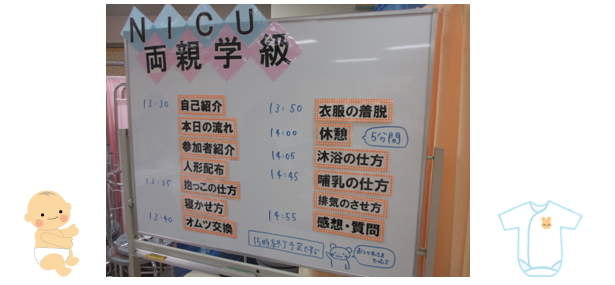 NICU
両親学級
13:30 自己紹介
本日の流れ
参加者紹介
人形配布
13:35 抱っこの仕方
寝かせ方
13:40 オムツ交換
13:50 衣服の着脱
14:00 休憩 5分間
14:05 沐浴の仕方
14:45 哺乳の仕方
排気のさせ方
14:55 感想・質問
15時終了予定です